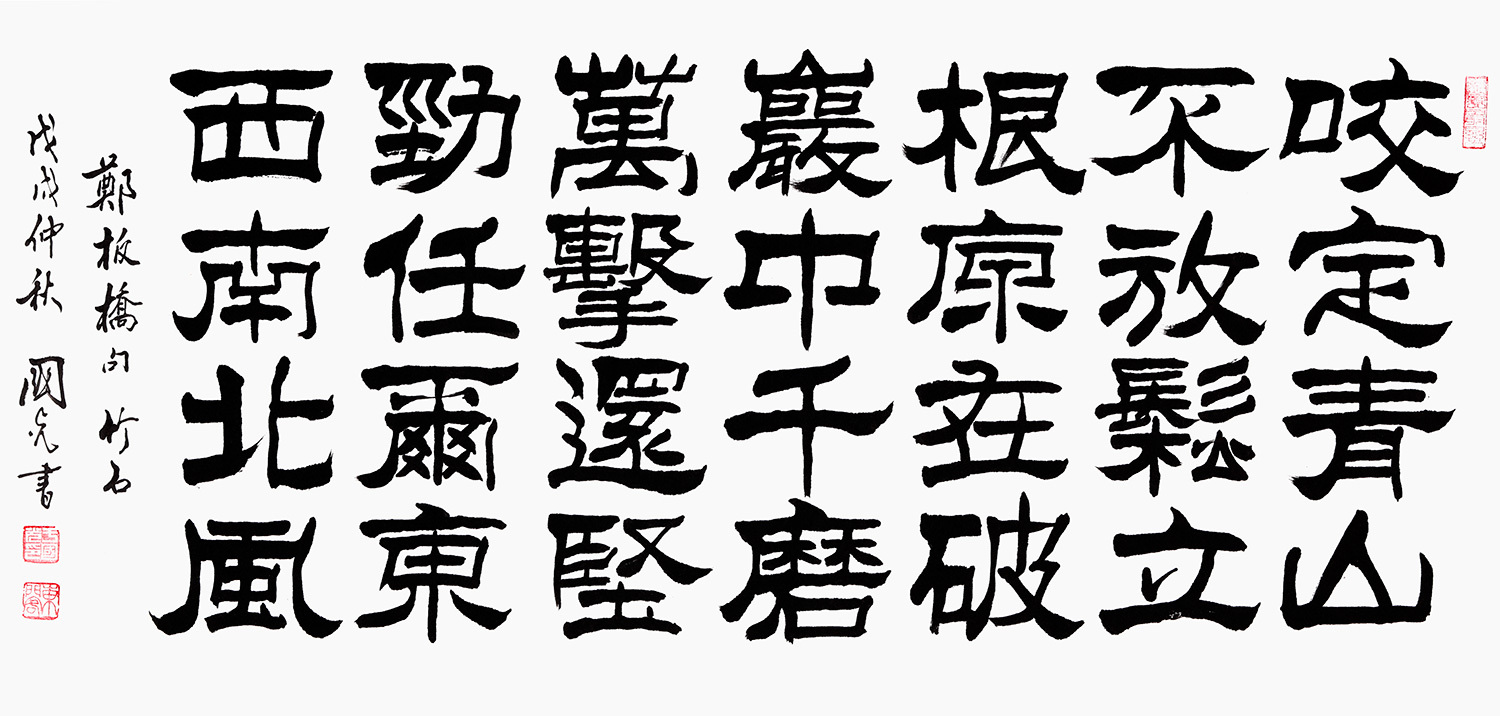 咬定青山
不放鬆立
根原在破
巖中千磨
萬擊還堅
勁任爾東
西南北風
鄭板橋句 竹石
戊戌仲秋 國亮書